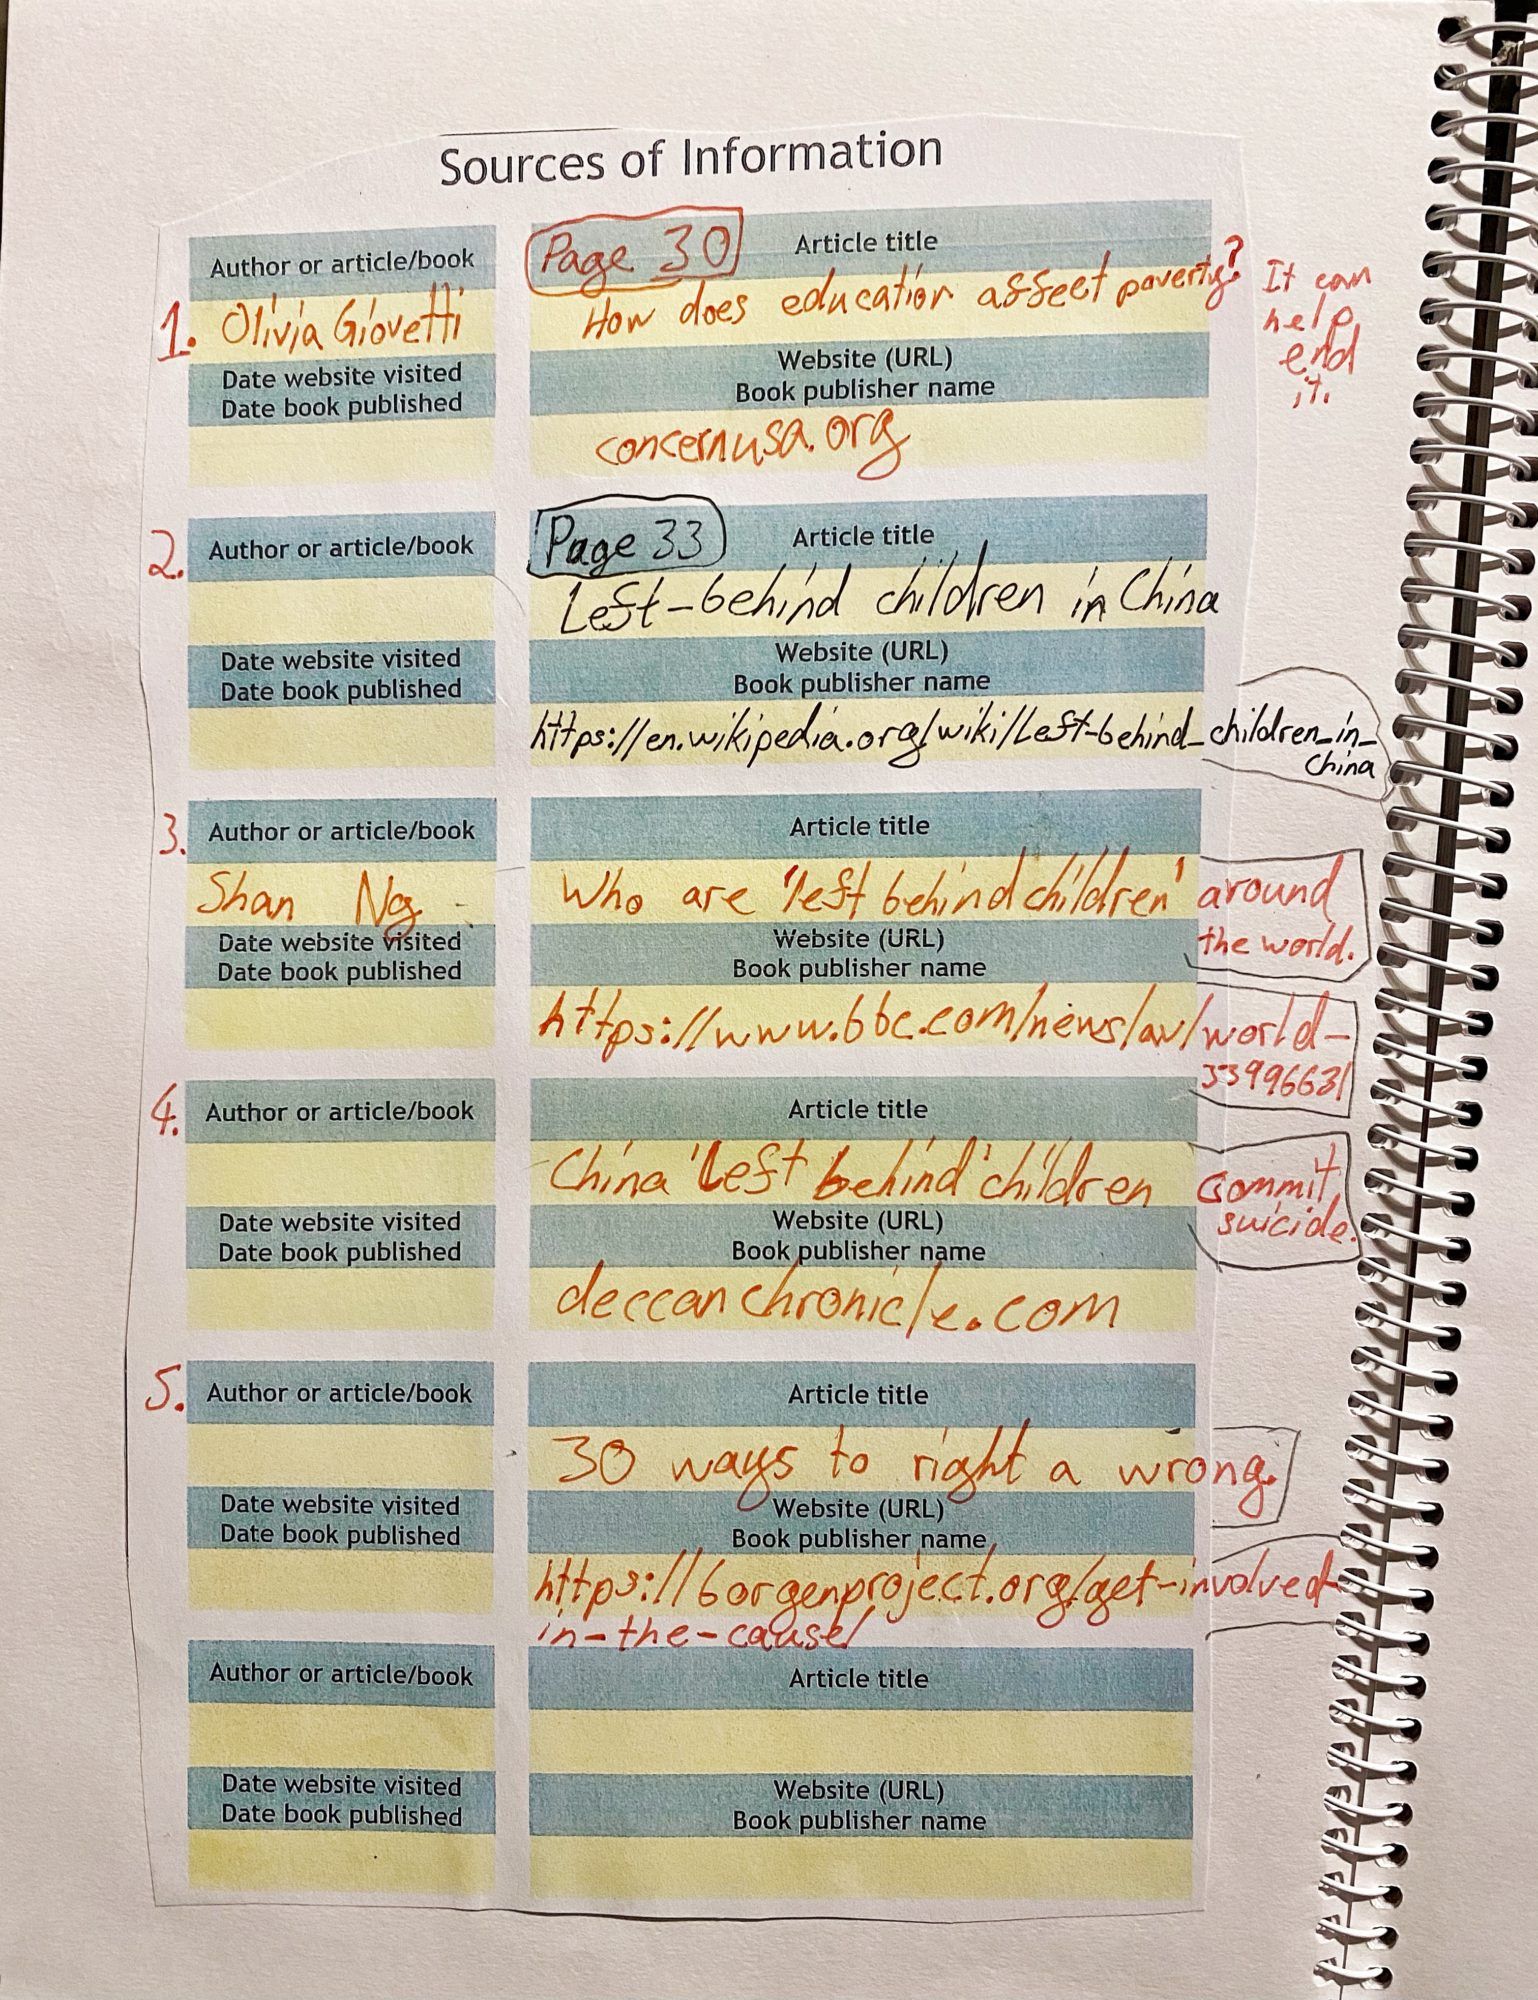 Sources of Information
Author or article/book
Page 30
Article title
1. Olivia Giovetti
How does education affect poverty? It can
help
end
it.
Date website visited
Date book published
Website (URL)
Book publisher name
concernusa.org
2. Author or article/book
Page 33
Article title
Left-behind children in China
Date website visited
Date book published
Website (URL)
Book publisher name
https://en.wikipedia.org/wiki/Left-behind_children_in_
China
3. Author or article/book
Article title
Shan Ng
Who are 'left behind children' around
the world.
Date website visited
Date book published
Website (URL)
Book publisher name
https://www.bbc.com/news/av/world-
33996631
4. Author or article/book
Article title
China 'Left behind' children commit
suicide.
Date website visited
Date book published
Website (URL)
Book publisher name
deccanchronicle.com
5. Author or article/book
Article title
30 ways to right a wrong.
Date website visited
Date book published
Website (URL)
Book publisher name
https://borgenproject.org/get-involved-
in-the-cause/
Author or article/book
Article title
Date website visited
Date book published
Website (URL)
Book publisher name